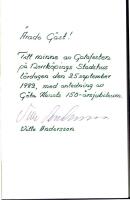 Ärade Gäst!
Till minne av Galafesten
på Norrköpings Stadshus
lördagen den 25 september
1982, med anledning av
Göta 150-årsjubileum.
Ville Andersson